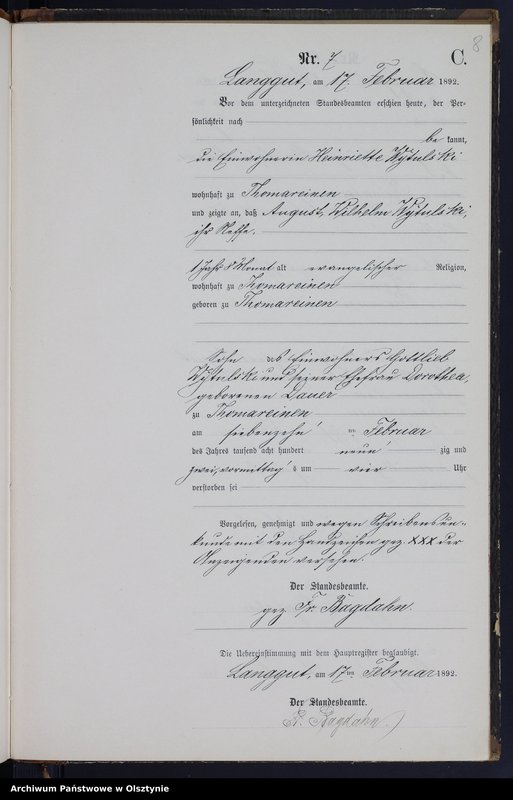 8
Nr. 7 C.
Langgut, am 17 Februar 1892.
Vor dem unterzeichneten Standesbeamten erschien heute, der Per-
sönlichkeit nach
be kannt,
die Einwohnerin Heinriette Wytulski
wohnhaft zu Thomareinen
und zeigte an, daß August, Wilhelm Wytulski,
ihr Neffe,
1 Jahr 8 Monat alt evangelischer Religion,
wohnhaft zu Thomareinen
geboren zu Thomareinen
Sohn des Einwohners Gottlieb
Wytulski und seiner Ehefrau Dorothea,
geborenen Lauer
zu Thomareinen
am siebenzehn Februar
des Jahres tausend acht hundert neun zig und
zwei, vormittag s um vier Uhr
verstorben sei
Vorgelesen, genehmigt und wegen Schreibensun-
kunde mit den Handzeichen gez. XXX der
Anzeigenden versehen.
Der Standesbeamte.
gez Fr. Bagdahn.
Die Uebereinstimmung mit dem Hauptregister beglaubigt.
Langgut, am 17ten Februar 1892.
Der Standesbeamte.
Bagdahn
Archiwum Państwowe w Olsztynie